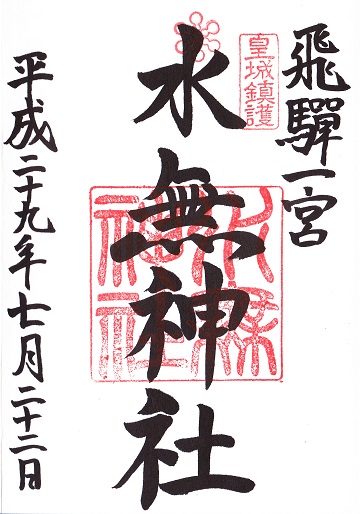 飛驒一宮
皇城鎮護
水無神社
水無神社
平成二十九年七月二十二日